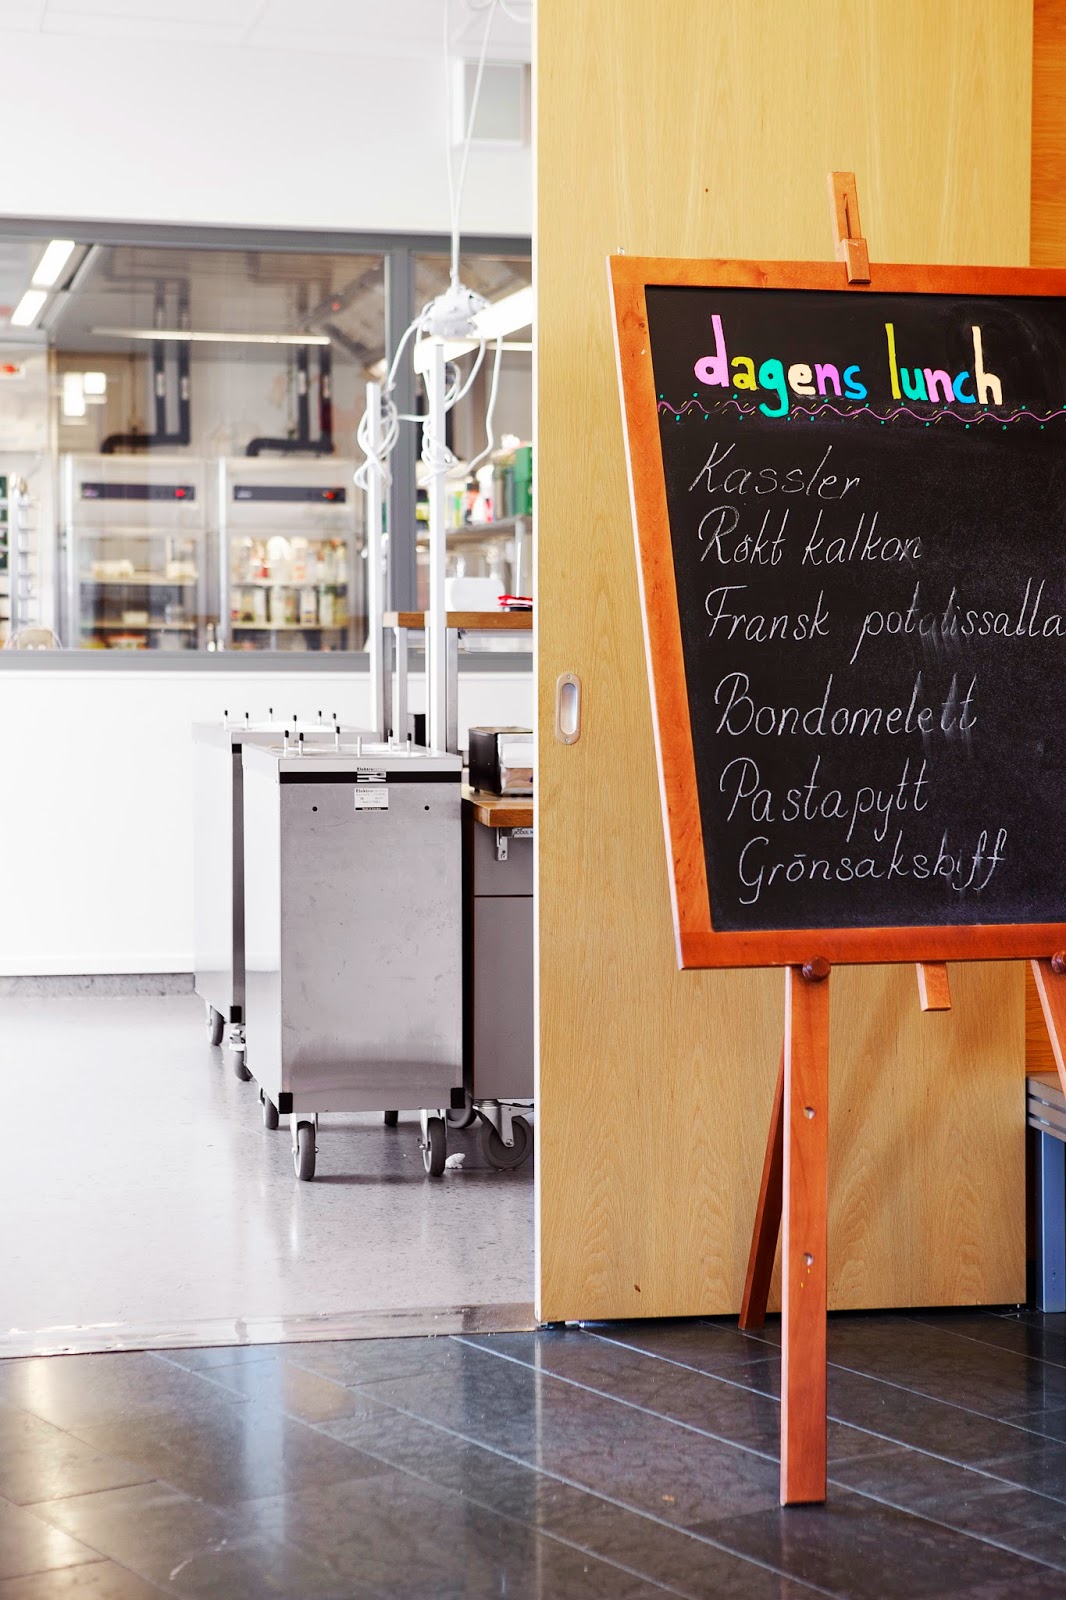 dagens lunch
Kassler
Rökt kalkon
Fransk potatissalla
Bondomelett
Pastapytt
Grönsaksbiff
Elektro
Elektro